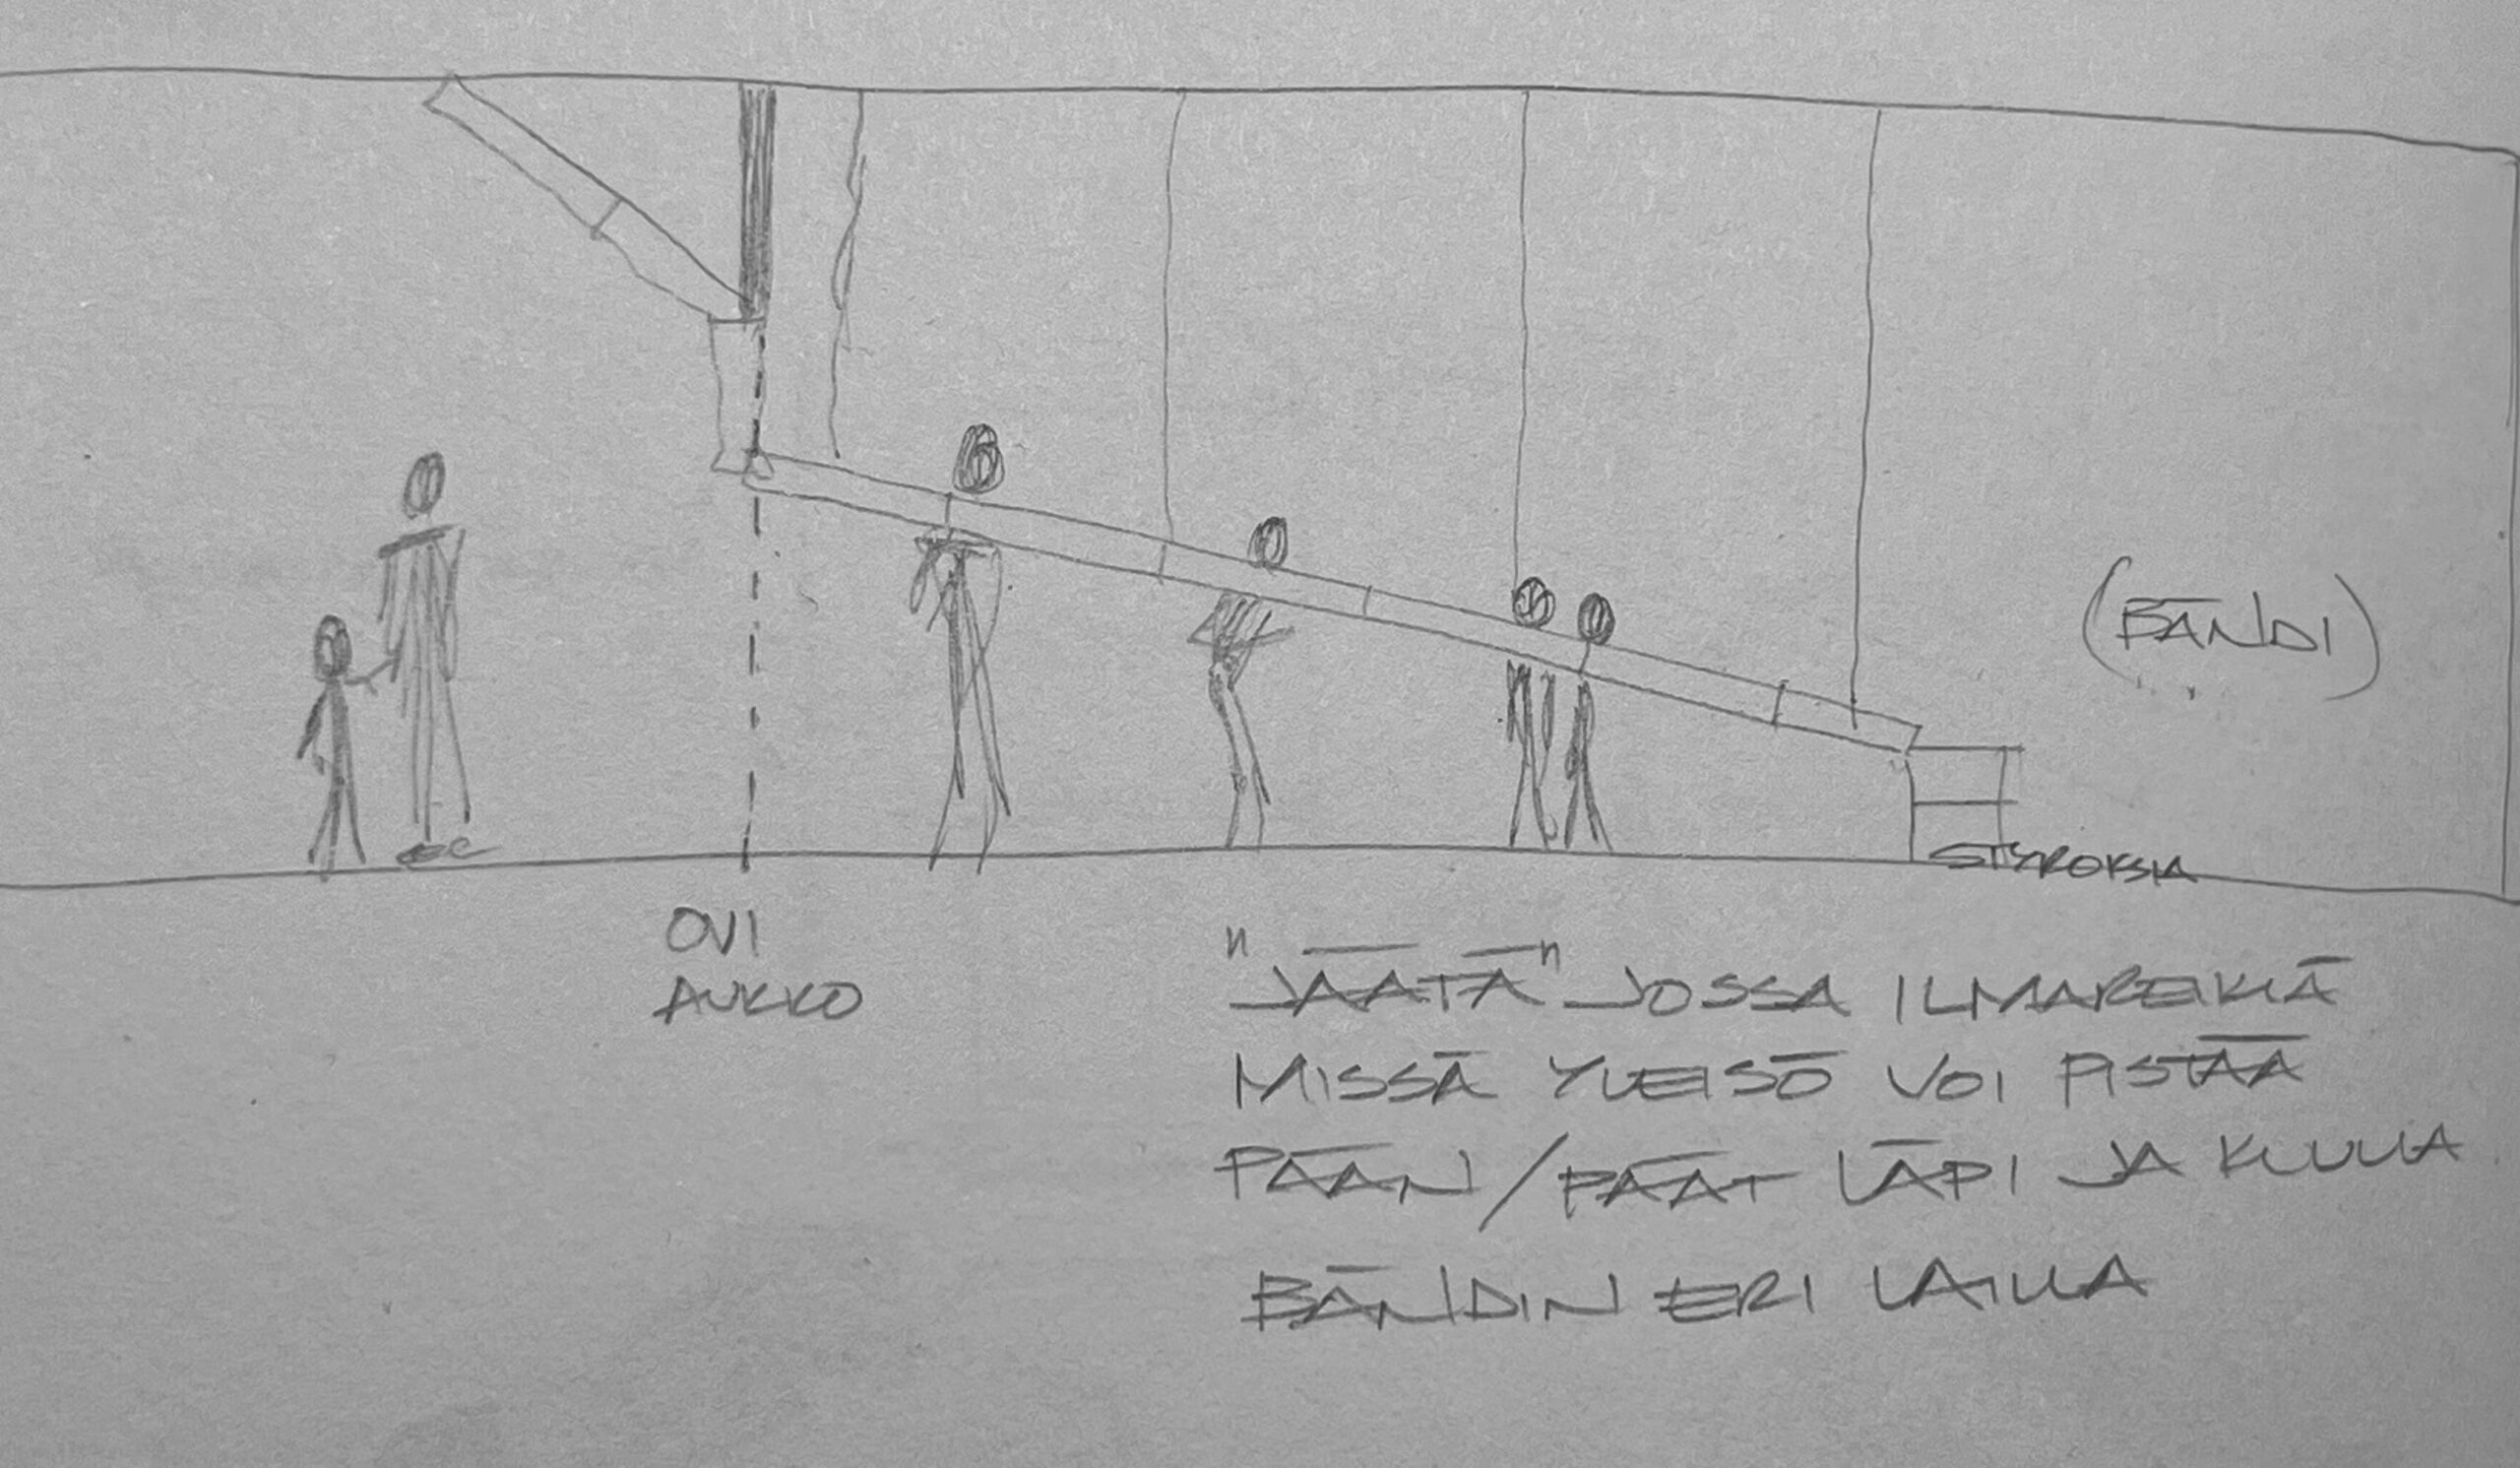 (BÄNDI)
STYROKSIA
OVI
AUKKO
"JÄÄTÄ" JOSSA ILMAREIKIÄ
MISSÄ YLEISÖ VOI PISTÄÄ
PÄÄN/PÄÄT LÄPI JA KUULLA
BÄNDIN ERI LAILLA